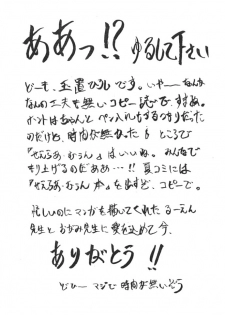 ああっ!! ゆるして下さい
どーも、玉置ひろしです。いやーなんか
なんの工夫も無いコピー誌で、すまぬ。
ホントはちゃんとペン入れするつもりだった
のだけど、時間が無かった。ところで
はいいね。みんなで
もり上げるのだああ…!! 夏コミには
本を出すぞ、コピーで。
忙しいのにマンガを描いてくれた るーえん
先生と おがみ先生に 愛を込めて今、
ありがとう!!
どひー マジで 時間が無いぞう